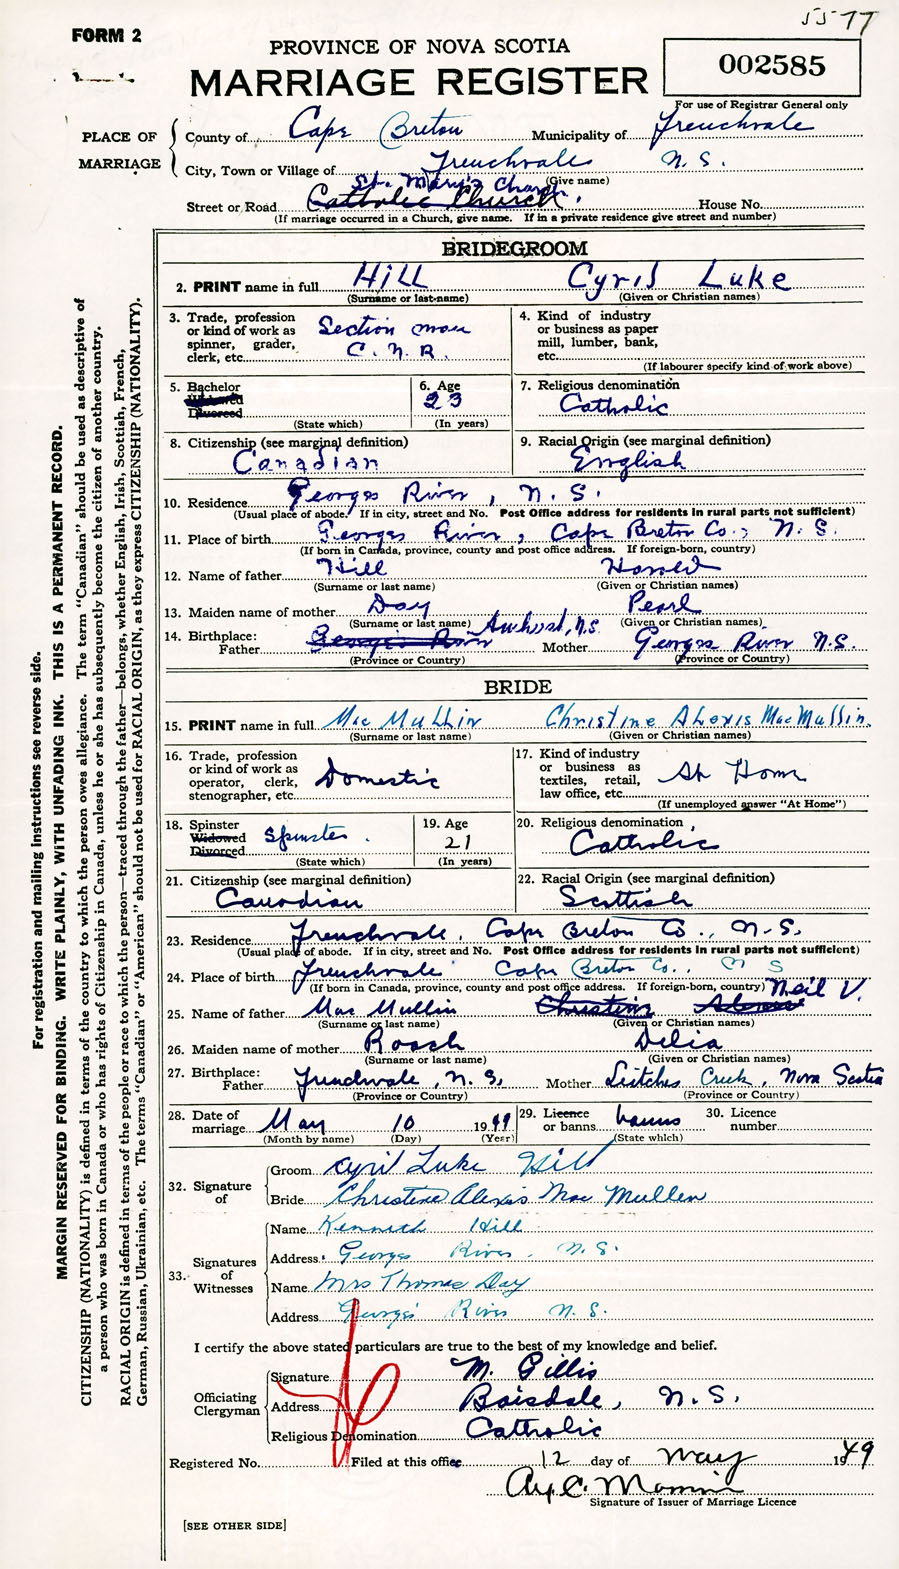 5577
FORM 2
PROVINCE OF NOVA SCOTIA
MARRIAGE REGISTER
002585
For use of Registrar General only
PLACE OF MARRIAGE
County of Cape Breton Municipality of Frenchvale
City, Town or Village of Frenchvale N.S.
(Give name)
St. Mary's Church
Street or Road Catholic Church. House No.
(If marriage occurred in a Church, give name. If in a private residence give street and number)
BRIDEGROOM
2. PRINT name in full Hill Cyril Luke
(Surname or last-name) (Given or Christian names)
3. Trade, profession or kind of work as spinner, grader, clerk, etc. Section man C.N.R.
4. Kind of industry or business as paper mill, lumber, bank, etc.
(If labourer specify kind of work above)
5. Bachelor Widowed Divorced
(State which)
6. Age 23
(In years)
7. Religious denomination Catholic
8. Citizenship (see marginal definition) Canadian
9. Racial Origin (see marginal definition) English
10. Residence Georges River, N.S.
(Usual place of abode. If in city, street and No. Post Office address for residents in rural parts not sufficient)
11. Place of birth Georges River, Cape Breton Co., N.S.
(If born in Canada, province, county and post office address. If foreign-born, country)
12. Name of father Hill Harold
(Surname or last name) (Given or Christian names)
13. Maiden name of mother Day Pearl
(Surname or last name) (Given or Christian names)
Amherst, N.S.
14. Birthplace: Father Georges River Mother Georges River N.S.
(Province or Country) (Province or Country)
BRIDE
15. PRINT name in full Mac Mullin Christine Alexis MacMullin.
(Surname or last name) (Given or Christian names)
16. Trade, profession or kind of work as operator, clerk, stenographer, etc. Domestic
17. Kind of industry or business as textiles, retail, law office, etc. At Home
(If unemployed answer "At Home")
18. Spinster Widowed Divorced Spinster.
(State which)
19. Age 21
(In years)
20. Religious denomination Catholic
21. Citizenship (see marginal definition) Canadian
22. Racial Origin (see marginal definition) Scottish
23. Residence Frenchvale, Cape Breton Co., N.S.
(Usual place of abode. If in city, street and No. Post Office address for residents in rural parts not sufficient)
24. Place of birth Frenchvale Cape Breton Co., N S
(If born in Canada, province, county and post office address. If foreign-born, country)
Neil V.
25. Name of father Mac Mullin Christine
(Surname or last name) (Given or Christian names)
26. Maiden name of mother Roach Delia
(Surname or last name) (Given or Christian names)
27. Birthplace: Father Frenchvale, N.S. Mother Leitches Creek, Nova Scotia
(Province or Country) (Province or Country)
28. Date of marriage May 10 1949
(Month by name) (Day) (Year)
29. Licence or banns banns
(State which)
30. Licence number
32. Signature of
Groom Cyril Luke Hill
Bride Christine Alexis Mac Mullen
33. Signatures of Witnesses
Name Kenneth Hill
Address Georges River, N.S.
Name Mrs Thomas Day
Address Georges River N.S.
I certify the above stated particulars are true to the best of my knowledge and belief.
Officiating Clergyman
Signature M. Gillis
Address Boisdale, N.S.
Religious Denomination Catholic
Registered No. Filed at this office 12 day of May 1949
Signature of Issuer of Marriage Licence
[SEE OTHER SIDE]
For registration and mailing instructions see reverse side.
MARGIN RESERVED FOR BINDING. WRITE PLAINLY, WITH UNFADING INK. THIS IS A PERMANENT RECORD.
CITIZENSHIP (NATIONALITY) is defined in terms of the country to which the person owes allegiance. The term "Canadian" should be used as descriptive of
a person who was born in Canada or who has rights of Citizenship in Canada, unless he or she has subsequently become the citizen of another country.
RACIAL ORIGIN is defined in terms of the people or race to which the person—traced through the father—belongs, whether English, Irish, Scottish, French,
German, Russian, Ukrainian, etc. The terms "Canadian" or "American" should not be used for RACIAL ORIGIN, as they express CITIZENSHIP (NATIONALITY).